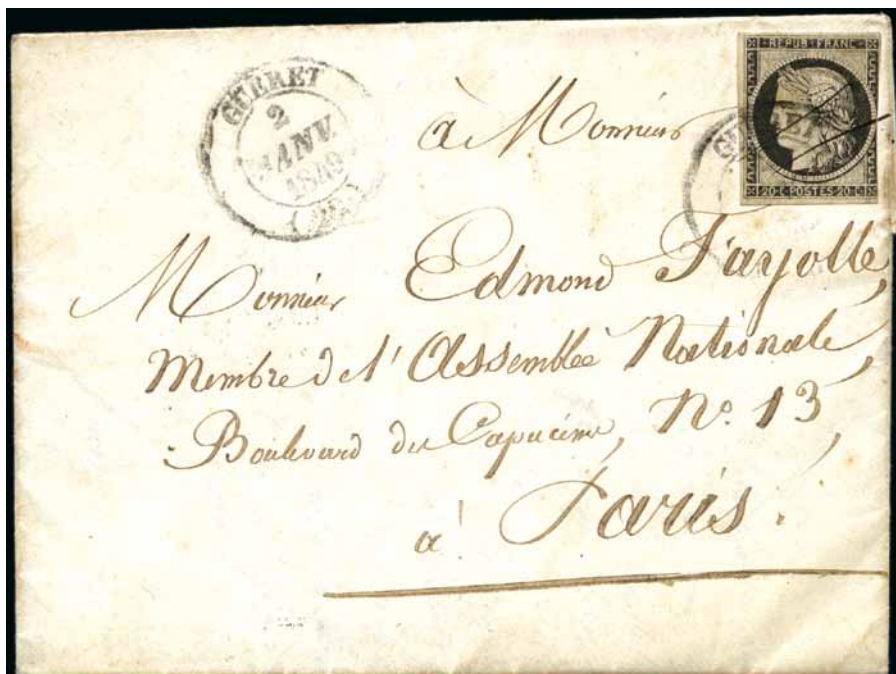 GUÉRET
2
JANV.
1849
(22)
REPUB FRANC
20 C POSTES 20 C
GUÉRET
à Monsieur
Monsieur Edmond Fayolle,
Membre de l'Assemblée Nationale,
Boulevard des Capucines, No. 13,
à Paris.